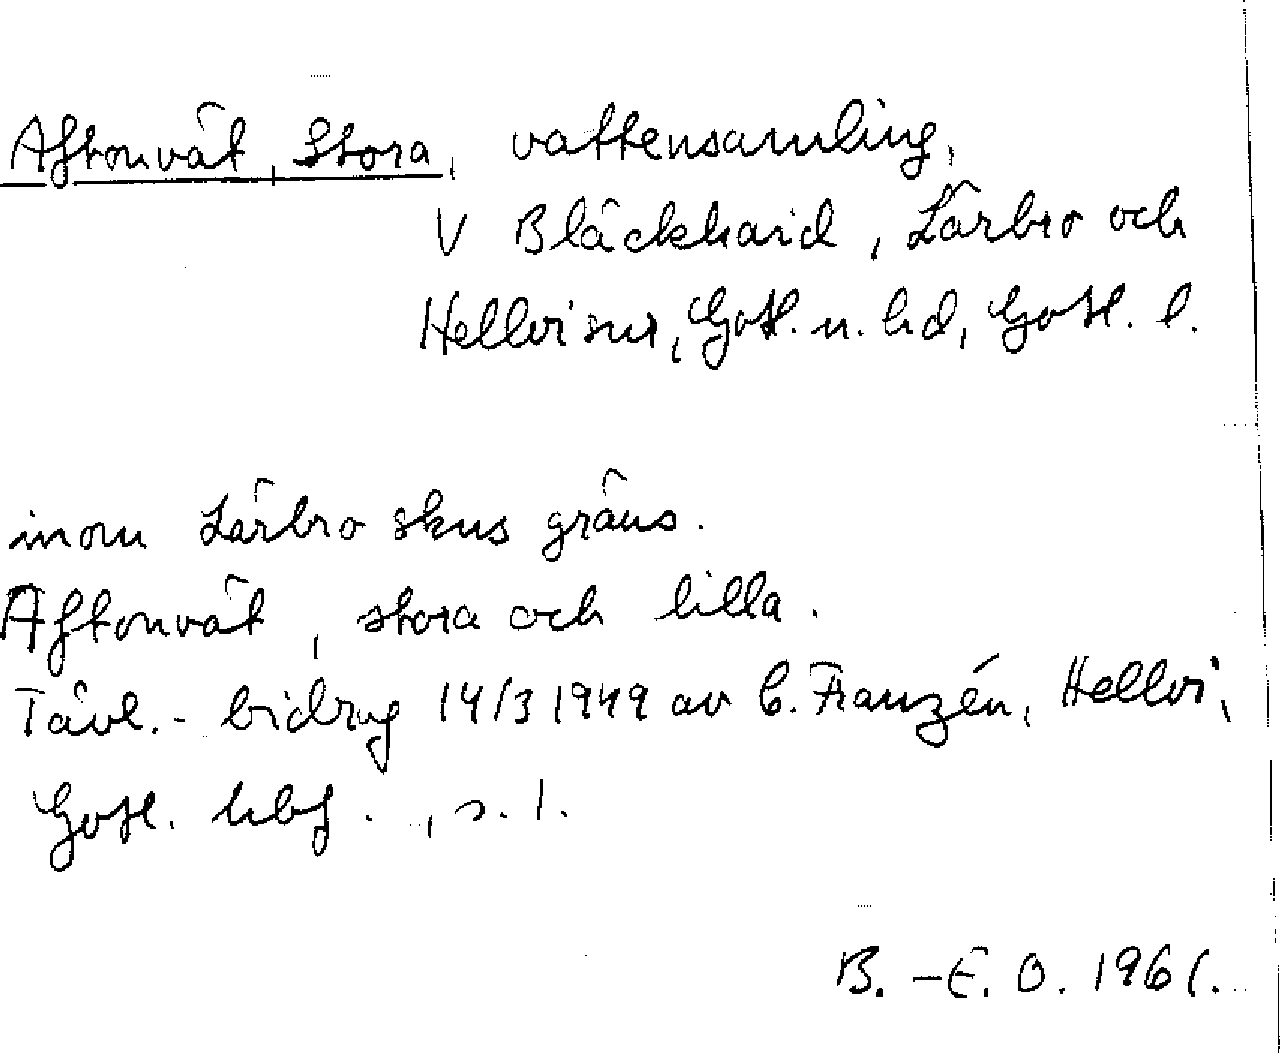 Aftonvät, Stora, vattensamling,
V Bläckhaid, Lärbro och
Hellvi snr, Gotl. n. hd, Gotl. l.
inom Lärbro skns gräns.
Aftonvät, stora och lilla.
Tävl.-bidrag 14/3 1949 av C. Franzén, Hellvi,
Gotl. hbf., s. 1.
B.-E. O. 1961.